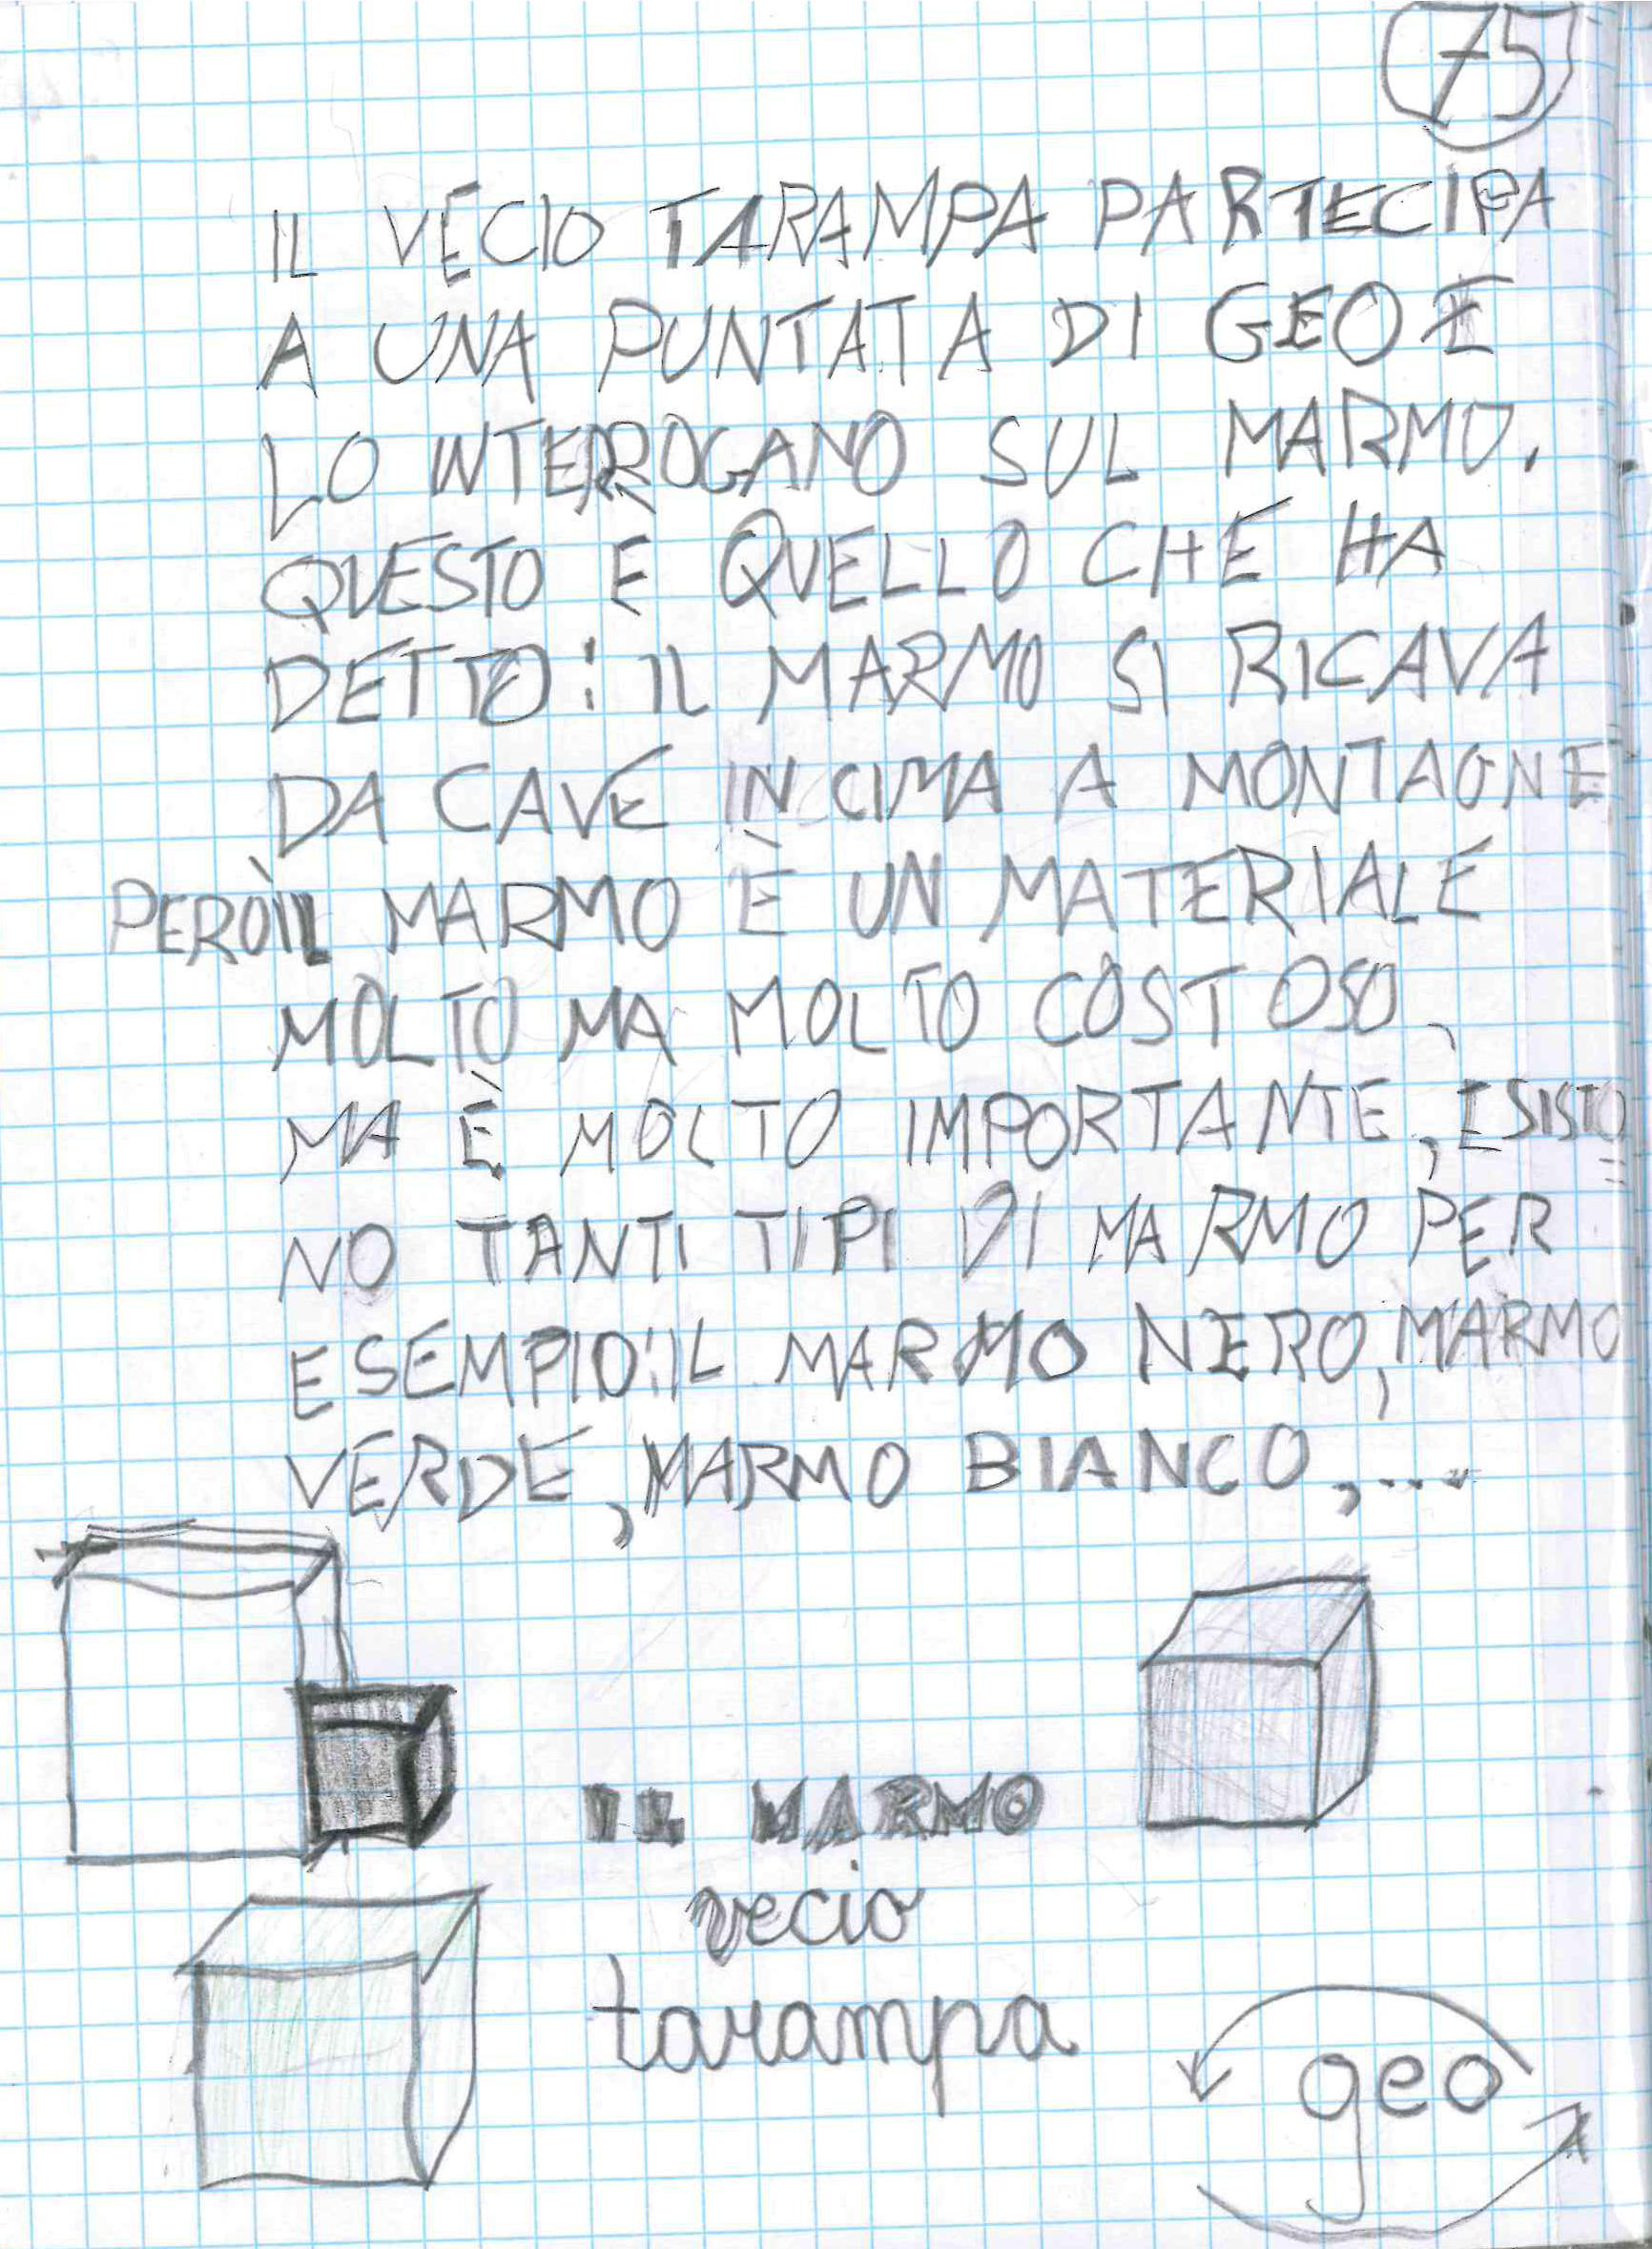 75
IL VECIO TARAMPA PARTECIPA
A UNA PUNTATA DI GEO E
LO INTERROGANO SUL MARMO.
QUESTO E QUELLO CHE HA
DETTO: IL MARMO SI RICAVA
DA CAVE IN CIMA A MONTAGNE
PERÒ IL MARMO È UN MATERIALE
MOLTO MA MOLTO COSTOSO,
MA È MOLTO IMPORTANTE, ESISTO
NO TANTI TIPI DI MARMO PER
ESEMPIO: IL MARMO NERO, MARMO
VERDE, MARMO BIANCO, ...
IL MARMO
vecio
tarampa
geo